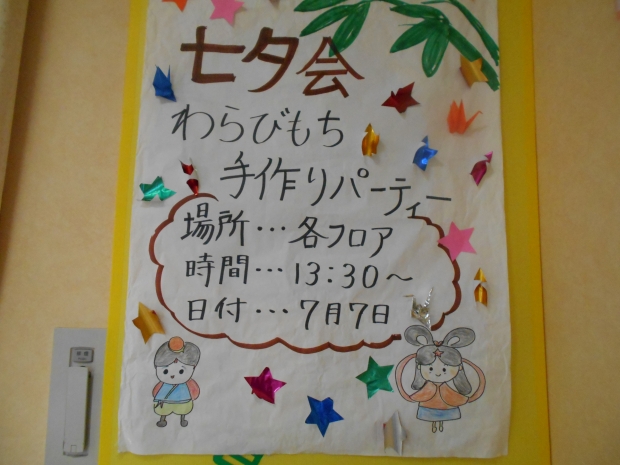 七夕会
わらびもち
手作りパーティー
場所…各フロア
時間…13:30〜
日付…7月7日